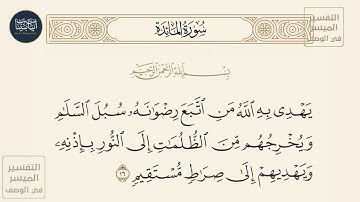 سُورَةُ المَائِدَةِ
التفسير
الميسر
في الوصف
بِسْمِ اللَّهِ الرَّحْمَٰنِ الرَّحِيمِ
يَهْدِي بِهِ ٱللَّهُ مَنِ ٱتَّبَعَ رِضْوَٰنَهُۥ سُبُلَ ٱلسَّلَٰمِ
وَيُخْرِجُهُم مِّنَ ٱلظُّلُمَٰتِ إِلَى ٱلنُّورِ بِإِذْنِهِۦ
وَيَهْدِيهِمْ إِلَىٰ صِرَٰطٍ مُّسْتَقِيمٍ ١٦
التفسير
الميسر
في الوصف